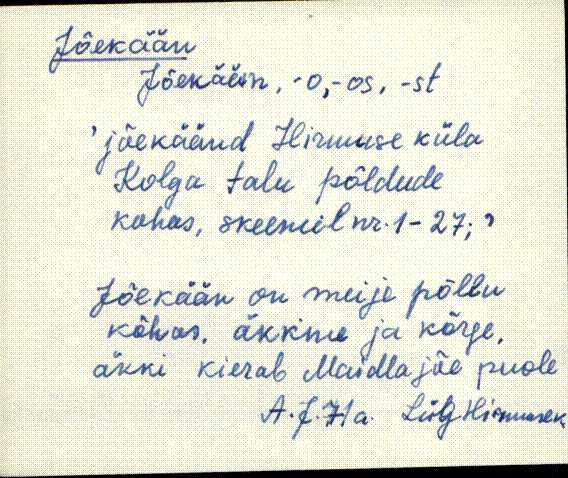 Jõekään
Jõekään, -o, -os, -st
'jõekäänd Hirmuse küla
Kolga talu põldude
kohas, skeemil nr. 1-27;'
Jõekään on meije põllu
kõhas, äkkine ja kõrge,
äkki kierab Maidla jõe puole
A.J. 71a. Lüg Hirmuse k.